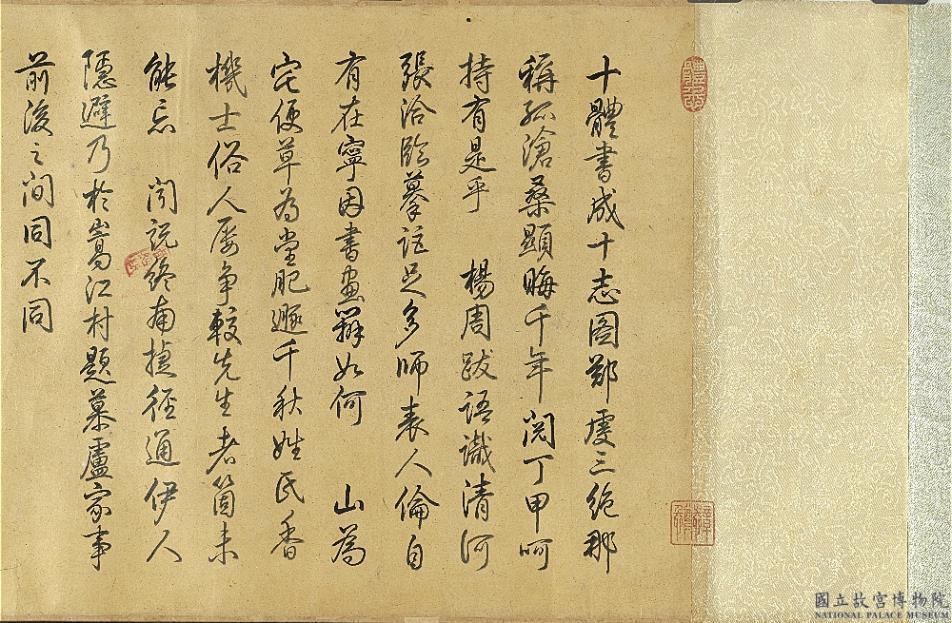 十體書成十志圖鄭虔三絕那
稱孤滄桑顯晦千年閱丁甲呵
持有是乎　楊周跋語識清河
張洽臨摹詎足多師表人倫自
有在寧因書畫辯如何　山為
宅便草為堂肥遯千秋姓氏香
機士俗人屢爭較先生者箇未
能忘　閱說終南捷徑通伊人
隱避乃於嵩江村題慕盧家事
前後之間同不同
國立故宮博物院
NATIONAL PALACE MUSEUM